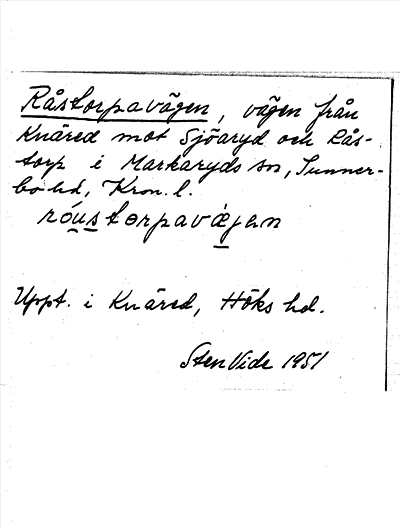 Råstorpavägen, vägen från
Knäred mot Sjöaryd och Rås-
torp i Markaryds sn, Sunner-
bo hd, Kron. l.
róustorpavæ̀gen
Uppt. i Knäred, Höks hd.
Sten Vide 1951